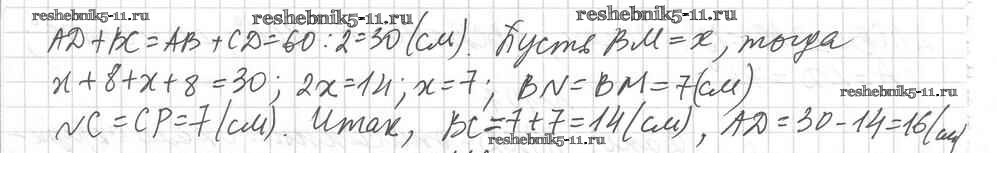 reshebnik5-11.ru reshebnik5-11.ru reshebnik5-11.ru
AD+BC=AB+CD=60:2=30(см). Пусть BM=x, тогда
x+8+x+8=30; 2x=14; x=7; BN=BM=7(см)
reshebnik5-11.ru
NC=CP=7(см). Итак, BC=7+7=14(см), AD=30-14=16(см)
reshebnik5-11.ru